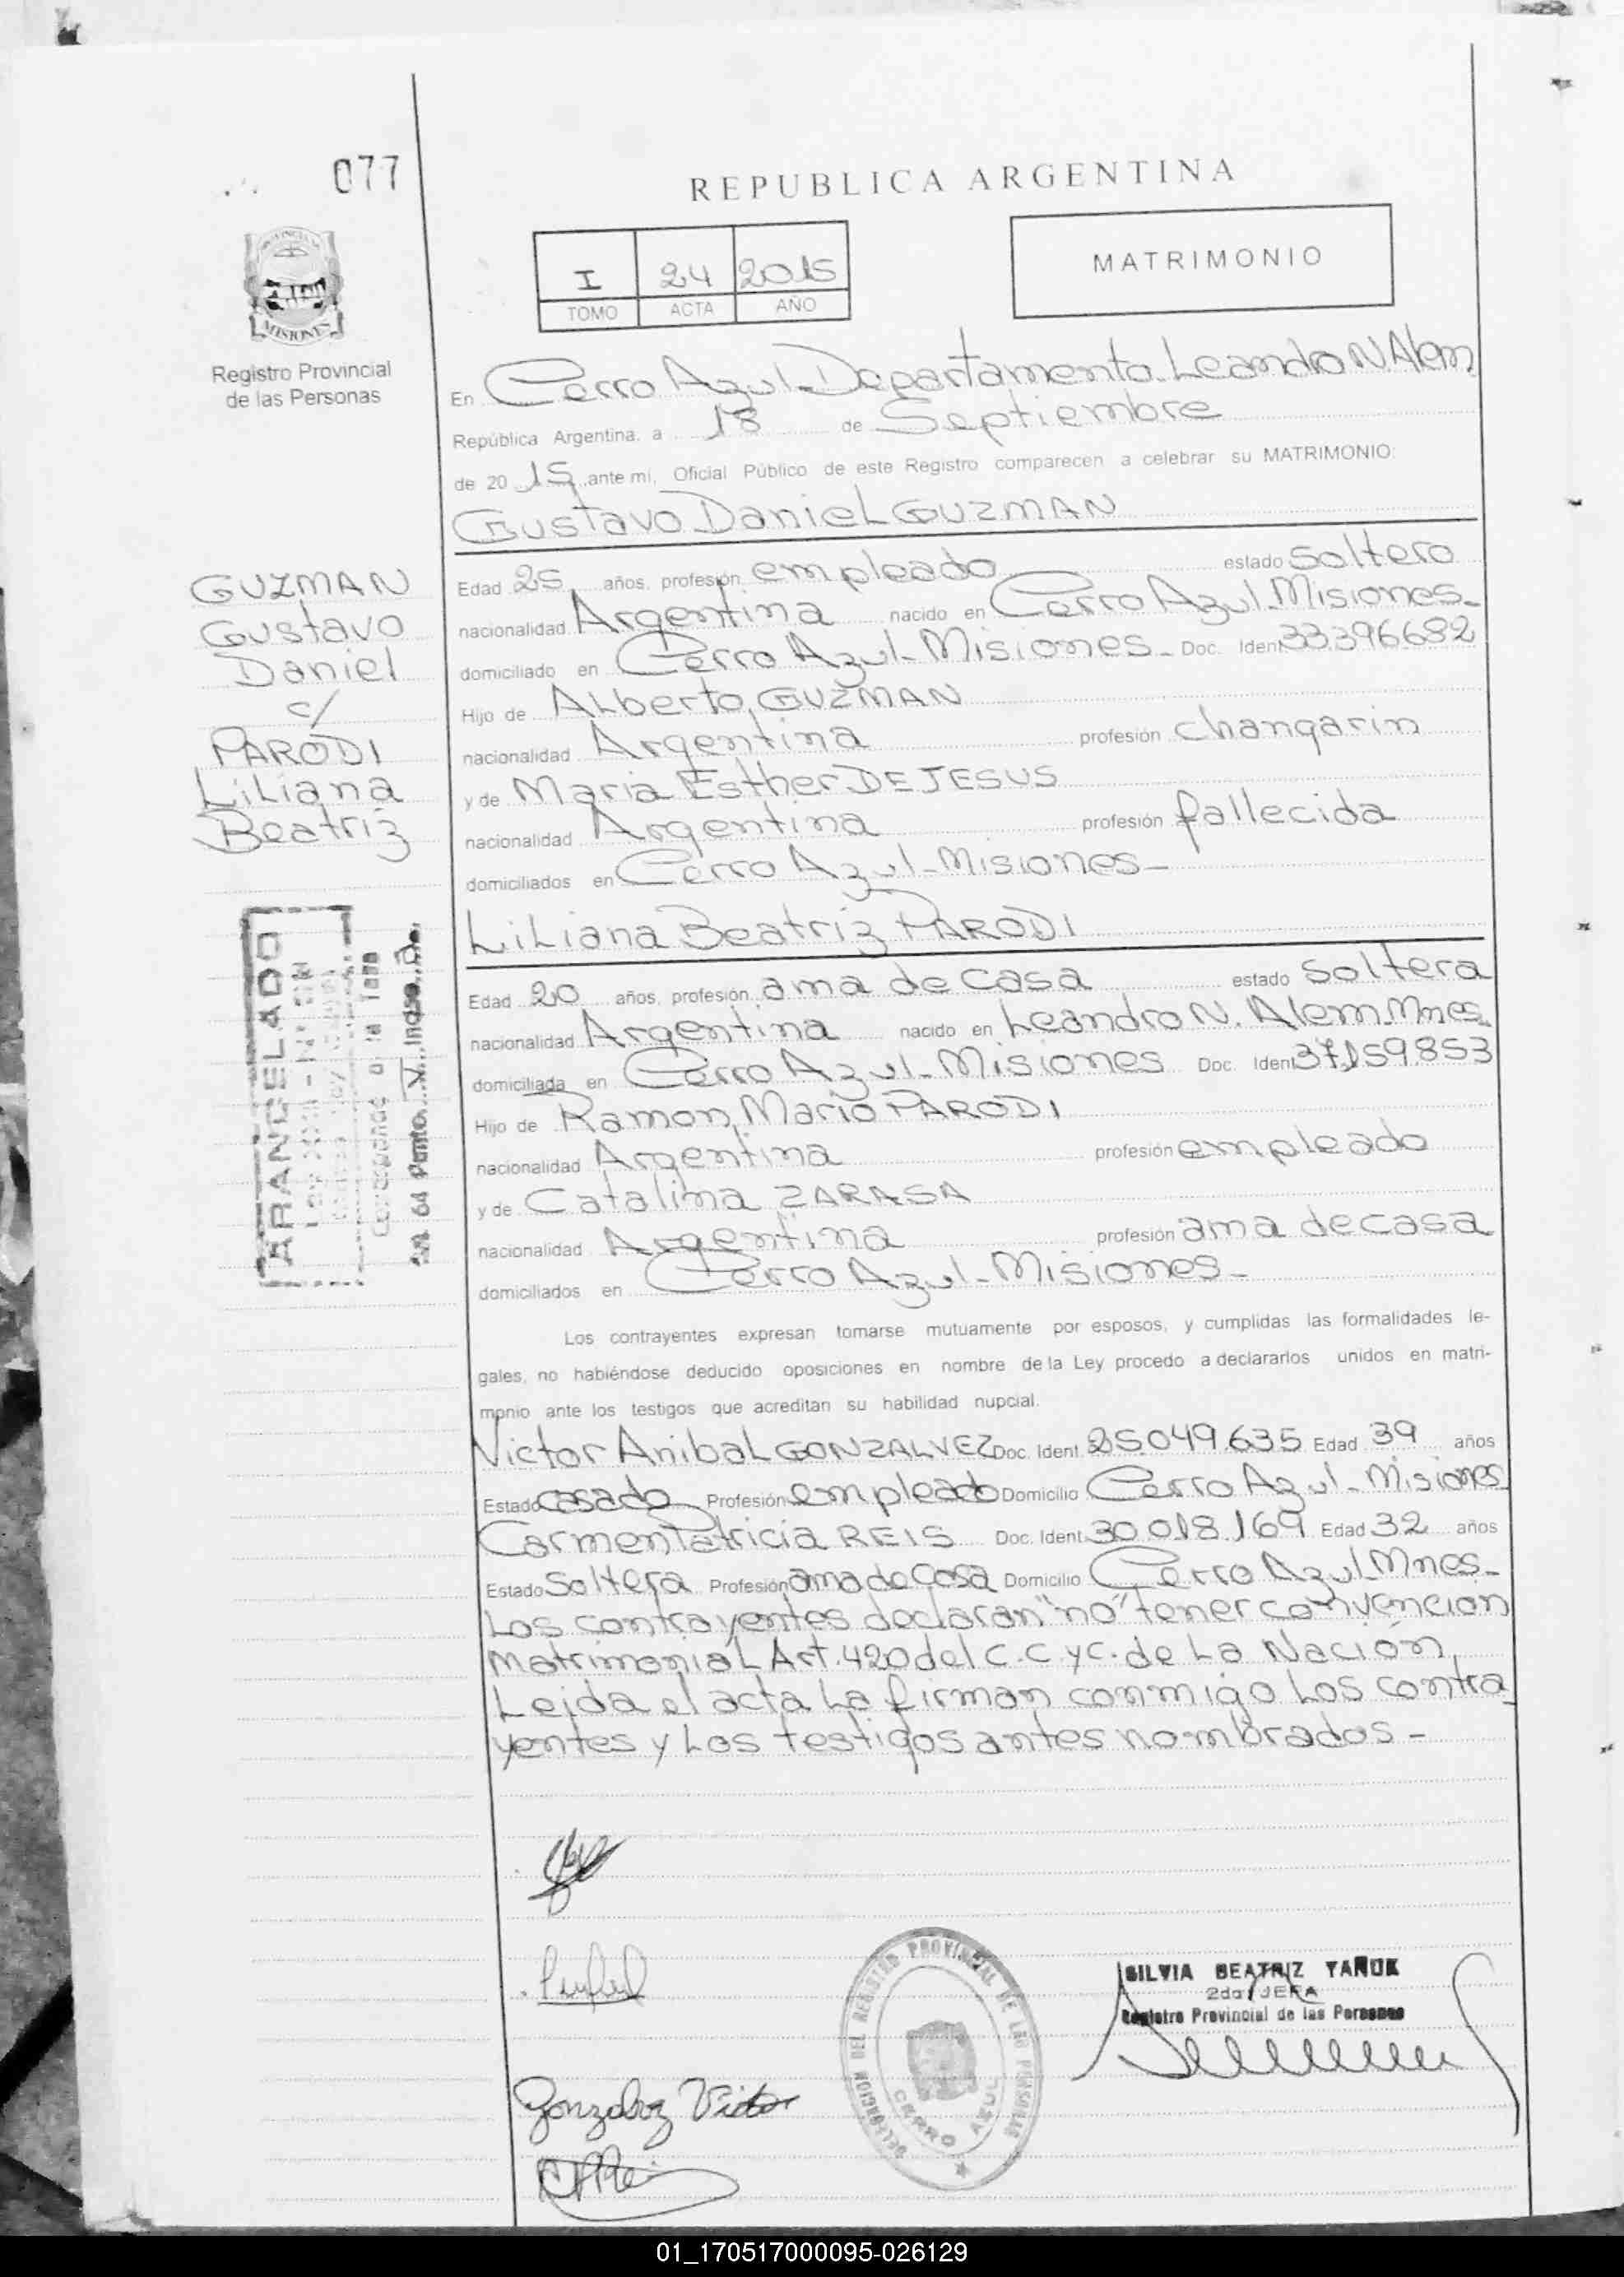 077
REPUBLICA ARGENTINA
I 24 2015
TOMO ACTA AÑO
MATRIMONIO
PROVINCIA DE
MISIONES
Registro Provincial
de las Personas
En Cerro Azul-Departamento-Leandro N. Alem
República Argentina, a 18 de Septiembre
de 2015, ante mi, Oficial Público de este Registro comparecen a celebrar su MATRIMONIO:
Gustavo Daniel GUZMAN
GUZMAN
Gustavo
Daniel
c/
PARODI
Liliana
Beatriz
Edad 25 años, profesión empleado estado Soltero
nacionalidad Argentina nacido en Cerro Azul-Misiones-
domiciliado en Cerro Azul-Misiones- Doc. Ident 33.396.682
Hijo de Alberto GUZMAN
nacionalidad Argentina profesión changarin
y de Maria Esther DE JESUS
nacionalidad Argentina profesión fallecida
domiciliados en Cerro Azul-Misiones-
Liliana Beatriz PARODI
ARANCELADO
Corresponde a la Tasa
64 Punto V Inciso
Edad 20 años, profesión ama de casa estado Soltera
nacionalidad Argentina nacido en Leandro N. Alem-Mnes.
domiciliada en Cerro Azul-Misiones Doc. Ident 37.159.853
Hijo de Ramon Mario PARODI
nacionalidad Argentina profesión empleado
y de Catalina ZARASA
nacionalidad Argentina profesión ama de casa
domiciliados en Cerro Azul-Misiones-
Los contrayentes expresan tomarse mutuamente por esposos, y cumplidas las formalidades le-
gales, no habiéndose deducido oposiciones en nombre de la Ley procedo a declararlos unidos en matri-
monio ante los testigos que acreditan su habilidad nupcial.
Victor Anibal GONZALVEZ Doc. Ident. 25.049.635 Edad 39 años
Estado casado Profesión empleado Domicilio Cerro Azul-Misiones
Carmen Patricia REIS Doc. Ident. 30.018.169 Edad 32 años
Estado Soltera Profesión ama de casa Domicilio Cerro Azul Mnes-
Los contrayentes declaran "no" tener convencion
Matrimonial Art. 420 del C.C y C. de La Nación
Leida el acta La firman conmigo Los contra
yentes y Los testigos antes nombrados-
DELEGACION DEL REGISTRO PROVINCIAL DE LAS PERSONAS
CERRO AZUL
SILVIA BEATRIZ YAÑUK
2da JEFA
Registro Provincial de las Personas
01_170517000095-026129